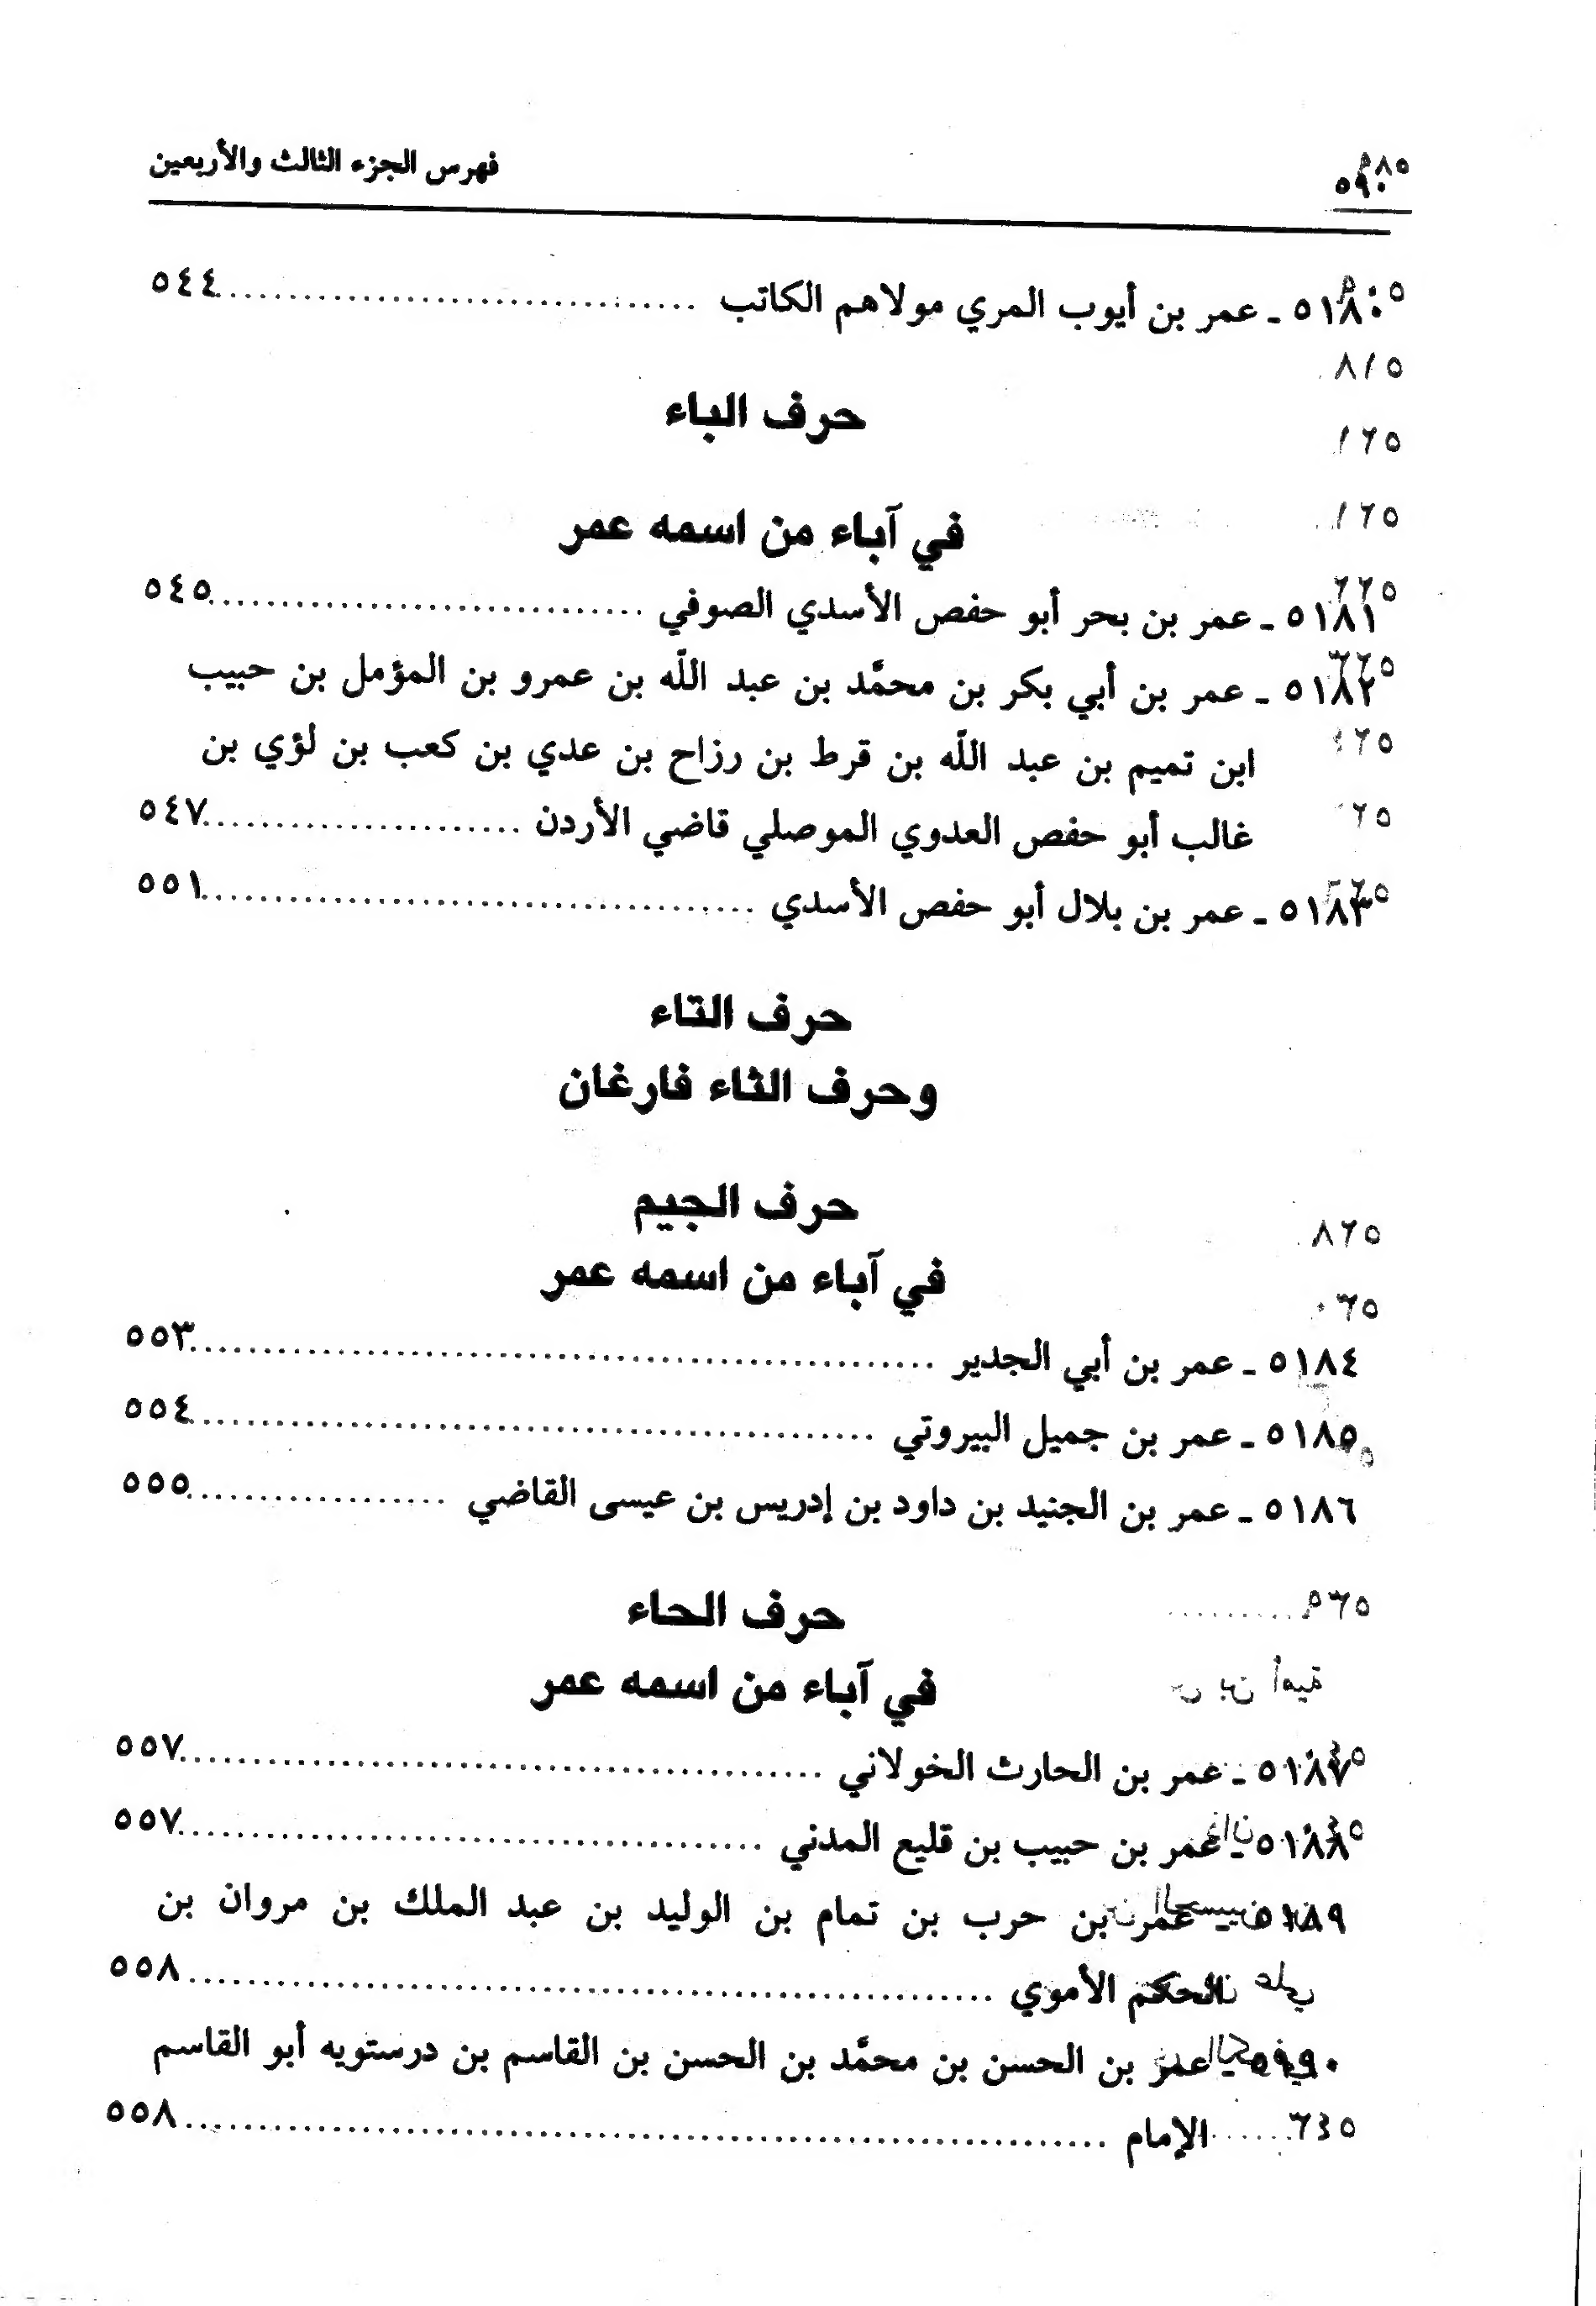 ٥٩٠
فهرس الجزء الثالث والأربعين
٥١٨٠ ـ عمر بن أيوب المري مولاهم الكاتب ........ ٥٤٤
حرف الباء
في آباء من اسمه عمر
٥١٨١ ـ عمر بن بحر أبو حفص الأسدي الصوفي ........ ٥٤٥
٥١٨٢ ـ عمر بن أبي بكر بن محمَّد بن عبد اللّه بن عمرو بن المؤمل بن حبيب
ابن تميم بن عبد اللّه بن قرط بن رزاح بن عدي بن كعب بن لؤي بن
غالب أبو حفص العدوي الموصلي قاضي الأردن ........ ٥٤٧
٥١٨٣ ـ عمر بن بلال أبو حفص الأسدي ........ ٥٥١
حرف التاء
وحرف الثاء فارغان
حرف الجيم
في آباء من اسمه عمر
٥١٨٤ ـ عمر بن أبي الجدير ........ ٥٥٣
٥١٨٥ ـ عمر بن جميل البيروتي ........ ٥٥٤
٥١٨٦ ـ عمر بن الجنيد بن داود بن إدريس بن عيسى القاضي ........ ٥٥٥
حرف الحاء
في آباء من اسمه عمر
٥١٨٧ ـ عمر بن الحارث الخولاني ........ ٥٥٧
٥١٨٨ ـ عمر بن حبيب بن قليع المدني ........ ٥٥٧
٥١٨٩ ـ عمر بن حرب بن تمام بن الوليد بن عبد الملك بن مروان بن
الحكم الأموي ........ ٥٥٨
٥١٩٠ ـ عمر بن الحسن بن محمَّد بن الحسن بن القاسم بن درستويه أبو القاسم
الإمام ........ ٥٥٨